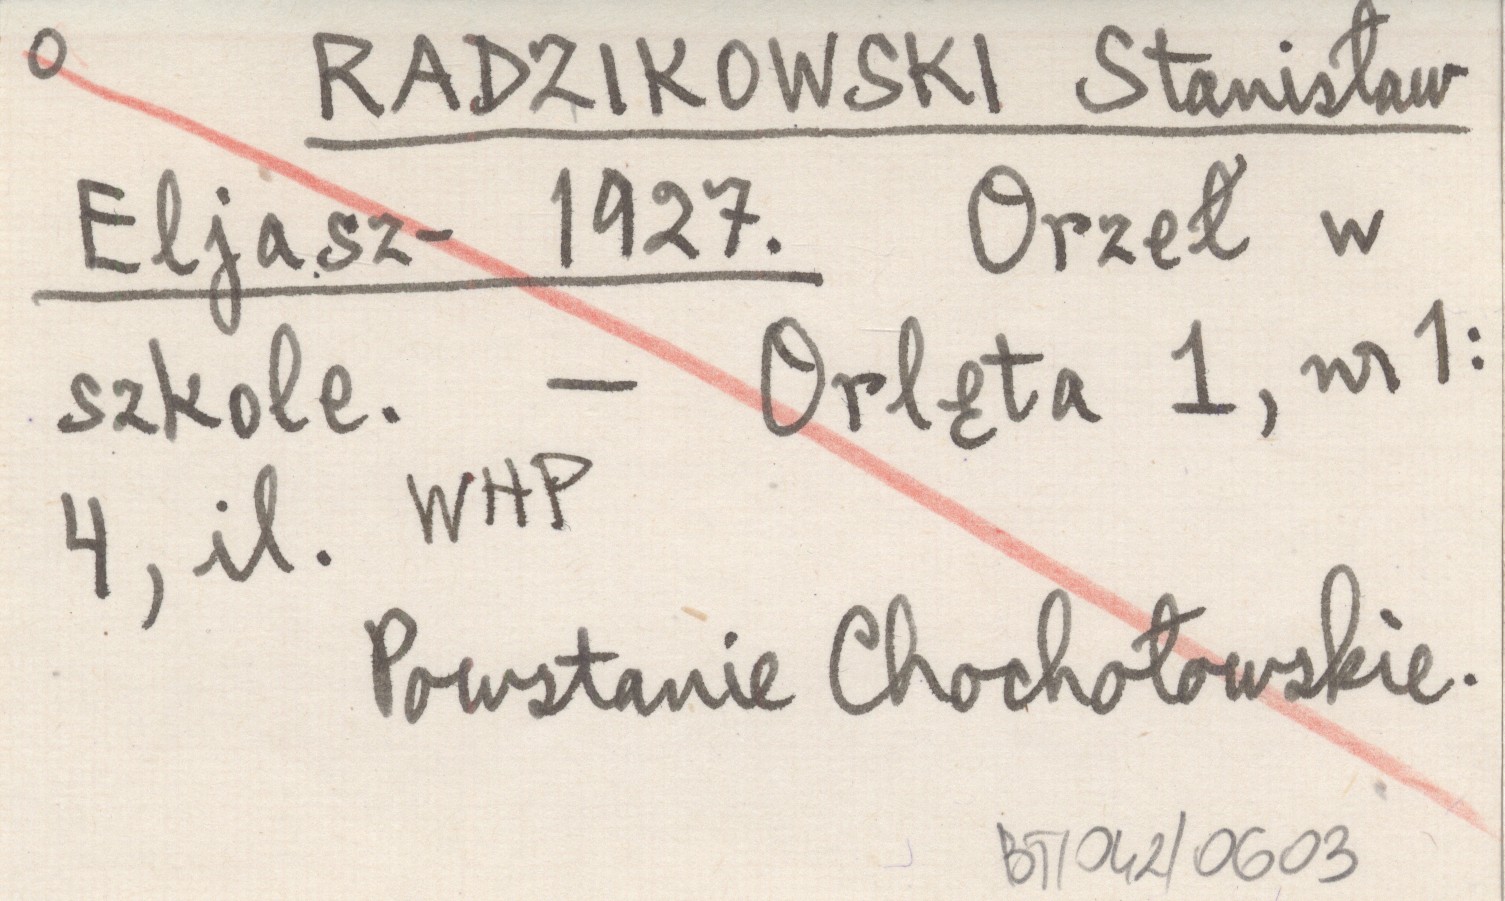 O RADZIKOWSKI Stanisław
Eljasz- 1927. Orzeł w
szkole. — Orlęta 1, nr 1:
4, il. WHP
Powstanie Chochołowskie.
BT/042/0603